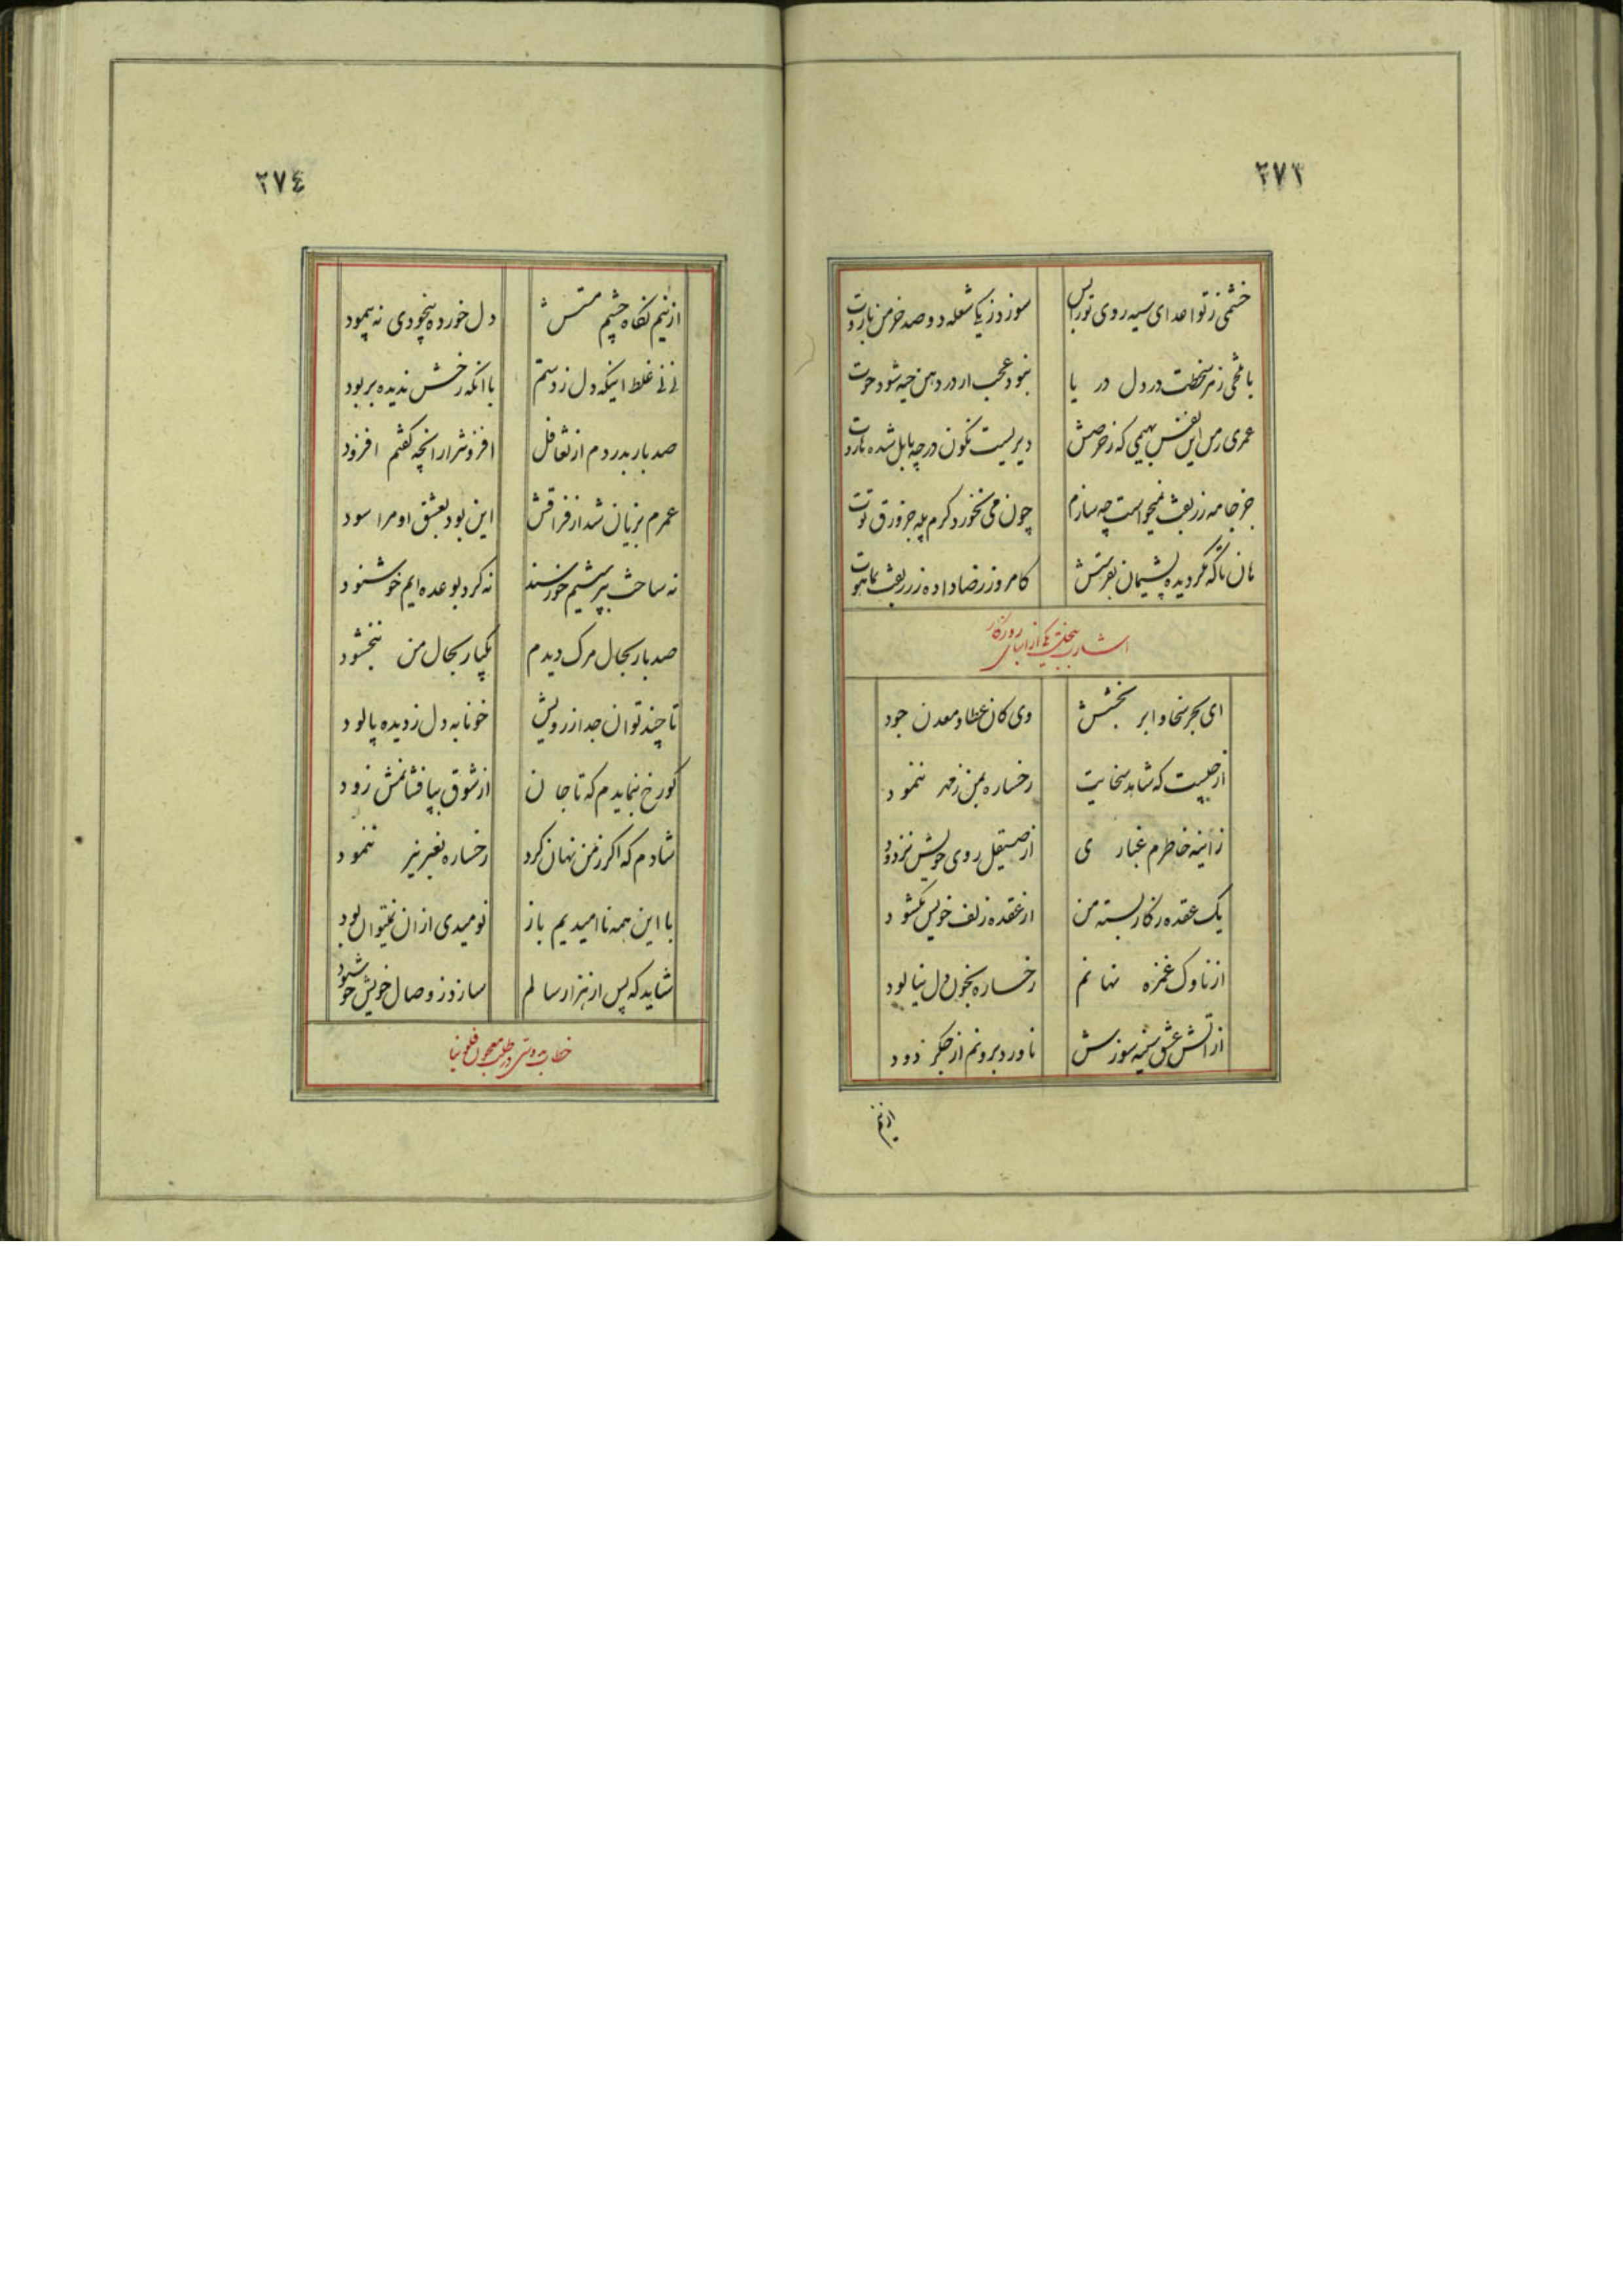 ۲۷۳
خشمی ز تو اعدای سیه روی تو را بس سوزد ز یکی شعله دو صد خرمن باروت
با تلخی زهر سخطت در دل دریا نبود عجب ار در دهن حیه شود حوت
عمری من این نفس بهیمی که ز حرصش دیریست نگون در چه بابل شده هاروت
جز جامه زربفت نمیخواست چه سازم چون می نخورد کرم پله جز ورق توت
هان تا که نگردیده پشیمان بفرستش کامروز رضا داده ز زربفت بماهوت
ای بحر سخا و ابر بخشش وی کان عطا و معدن جود
از چیست که شاهد سخایت رخساره بمن ز مهر ننمود
ز آینه خاطرم غباری از صیقل روی خویش نزدود
یک عقده ز کار بسته من از عقده زلف خویش نکشود
از ناوک غمزه نهانم رخساره بخون دل نیالود
از آتش عشق سینه سوزش ناورد برونم از جگر دود
از نیم
۲۷٤
از نیم نگاه چشم مستش دل خورده بیخودی نه پیمود
نی نی غلط اینکه دل ز دستم با آنکه رخش ندیده بربود
صد بار بدردم از تغافل افزون تر از آنچه گفتم افزود
عمرم بزیان شد از فراقش این بود بعشق او مرا سود
نه ساخت بپرسشیم خورسند نه کرد بوعده ایم خوشنود
صد بار بحال مرگ دیدم یکبار بحال من نبخشود
تا چند توان جدا ز رویش خونابه دل ز دیده پالود
کو رخ بنمایدم که تا جان از شوق بپا فشانمش زود
شادم که اگر ز من نهان کرد رخساره بغیر نیز ننمود
با این همه ناامیدیم باز نومیدی از آن نمیتوان بود
شاید که پس از هزار سالم سازد ز وصال خویش خوشنود
خطاب بدوستی در طلب معجون فلونیا